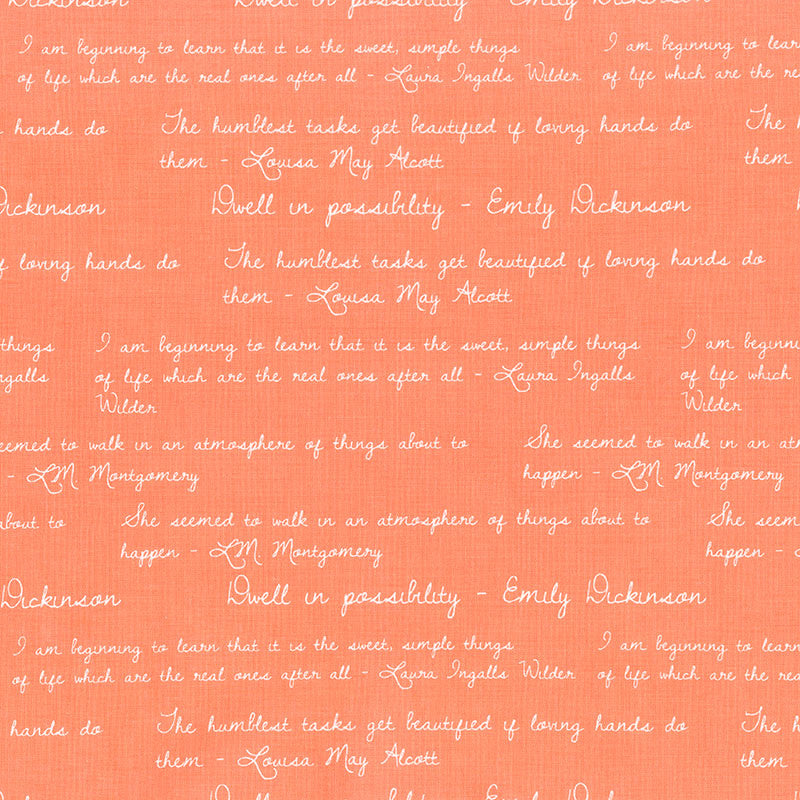 Dickinson Dwell in possibility - Emily Dickinson
I am beginning to learn that it is the sweet, simple things I am beginning to learn
of life which are the real ones after all - Laura Ingalls Wilder of life which are the re
hands do The humblest tasks get beautified if loving hands do The h
them - Louisa May Alcott them
Dickinson Dwell in possibility - Emily Dickinson
if loving hands do The humblest tasks get beautified if loving hands do
them - Louisa May Alcott
things I am beginning to learn that it is the sweet, simple things I am beginni
ngalls of life which are the real ones after all - Laura Ingalls of life which
Wilder Wilder
eemed to walk in an atmosphere of things about to She seemed to walk in an at
- L.M. Montgomery happen - L.M. Montgomery
about to She seemed to walk in an atmosphere of things about to She seem
happen - L.M. Montgomery happen -
Dickinson Dwell in possibility - Emily Dickinson
I am beginning to learn that it is the sweet, simple things I am beginning to learn
of life which are the real ones after all - Laura Ingalls Wilder of life which are the rea
hands do The humblest tasks get beautified if loving hands do The h
them - Louisa May Alcott them